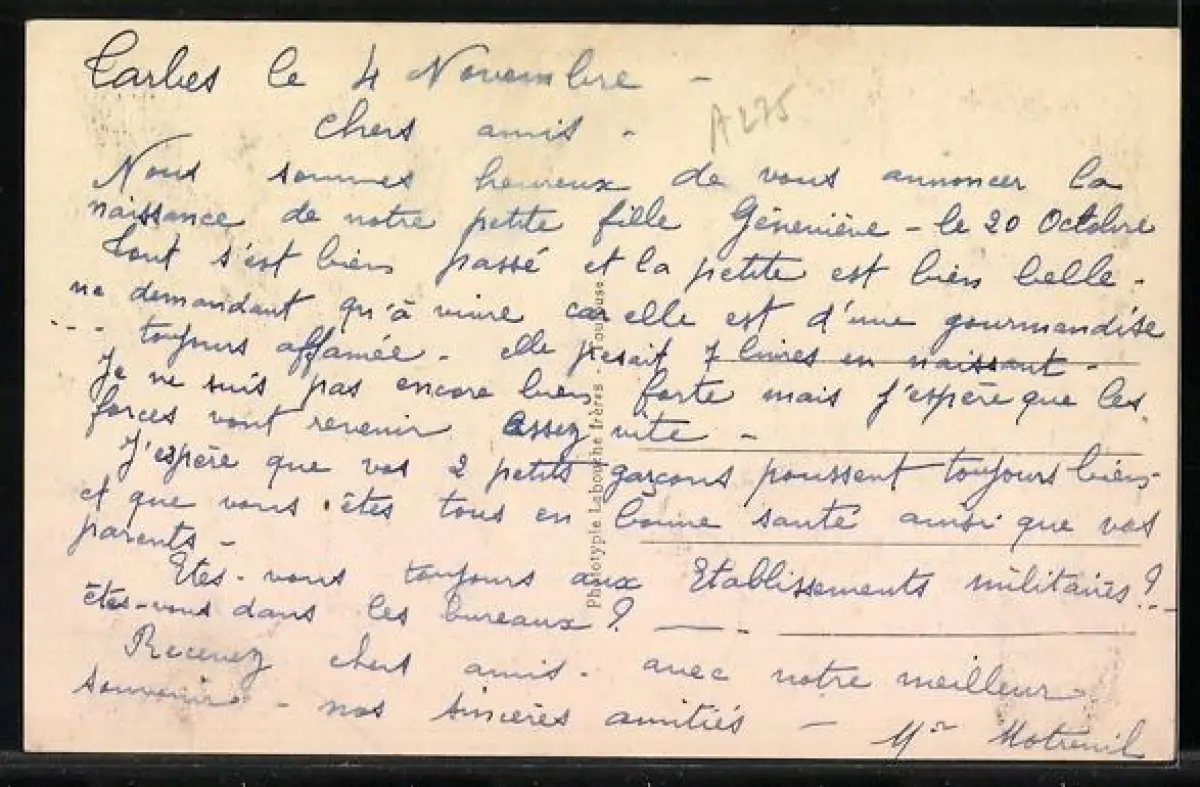 Tarbes le 4 Novembre -
A275
Chers amis -
Nous sommes heureux de vous annoncer la
naissance de notre petite fille Géneviève - le 20 Octobre
Tout s'est bien passé et la petite est bien belle -
ne demandant qu'à vivre car elle est d'une gourmandise
--- toujours affamée - elle pesait 7 livres en naissant -
Je ne suis pas encore bien forte mais j'espère que les
forces vont revenir assez vite -
J'espère que vos 2 petits garçons poussent toujours bien
et que vous êtes tous en bonne santé ainsi que vos
parents -
Etes-vous toujours aux Etablissements militaires ? -
êtes-vous dans les bureaux ? -
Recevez chers amis - avec notre meilleur
souvenir - nos sincères amitiés -
Mr Motreuil
Phototypie Labouche frères - Toulouse